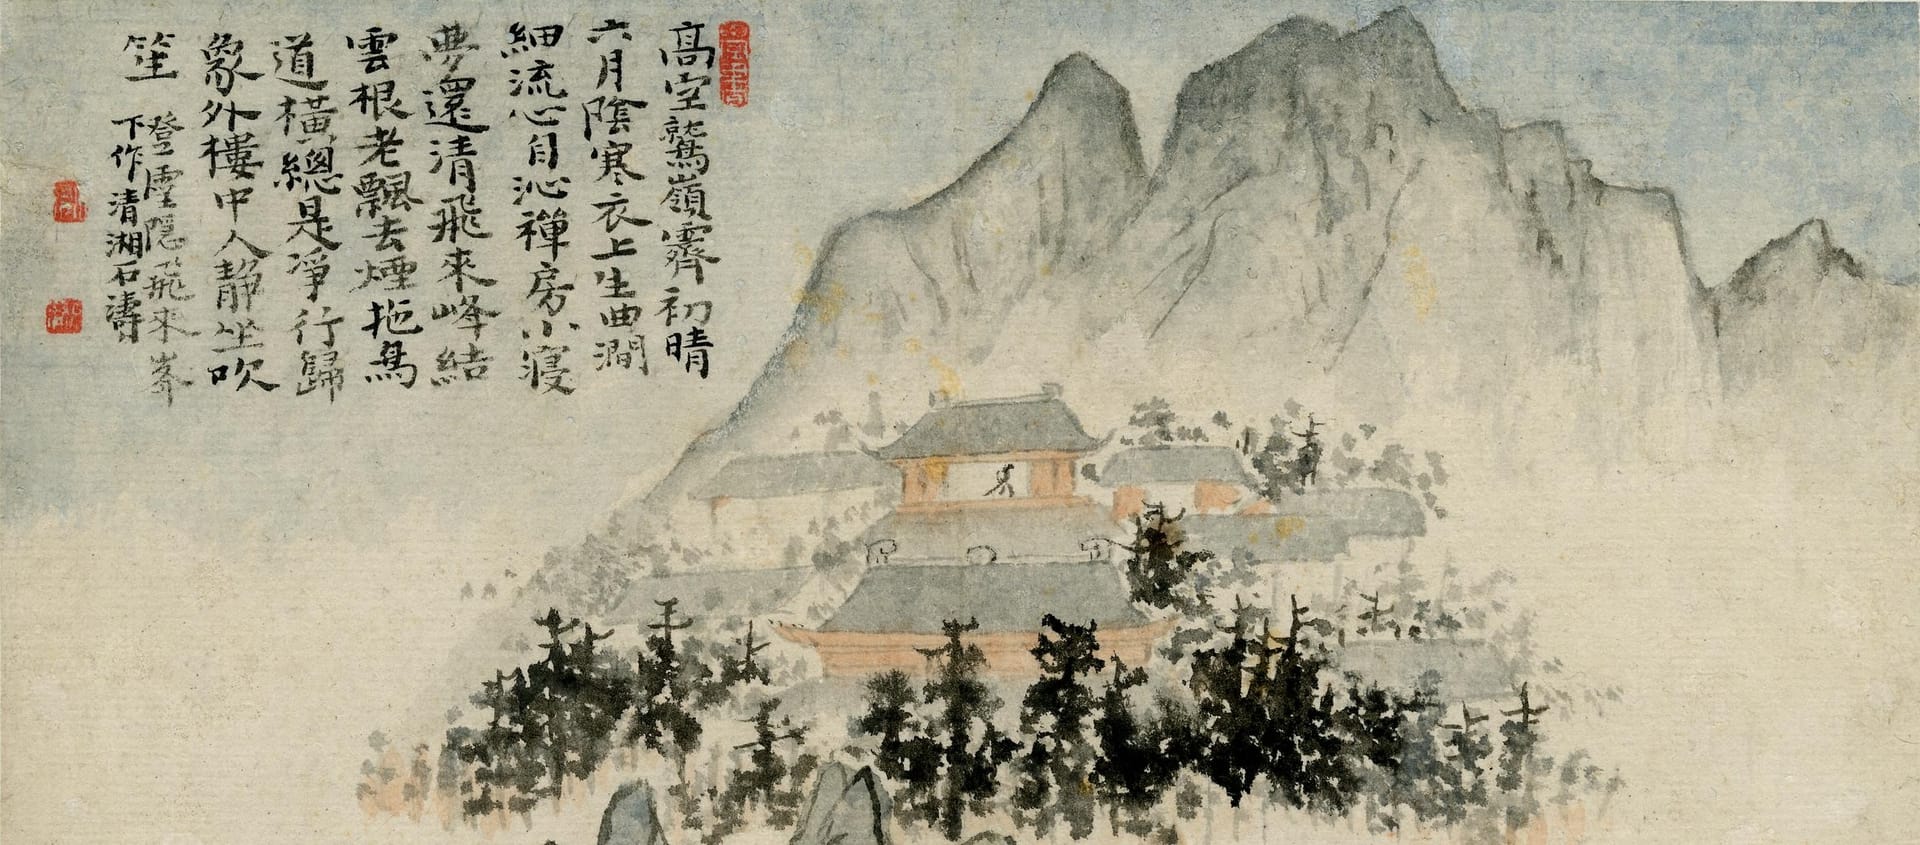 高空鷲嶺霽初晴
六月陰寒衣上生曲澗
細流心自沁禪房小寢
夢還清飛來峰結
雲根老飄去煙拖鳥
道橫總是淨行歸
象外樓中人靜坐吹
笙
登靈隱飛來峯
下作 清湘石濤